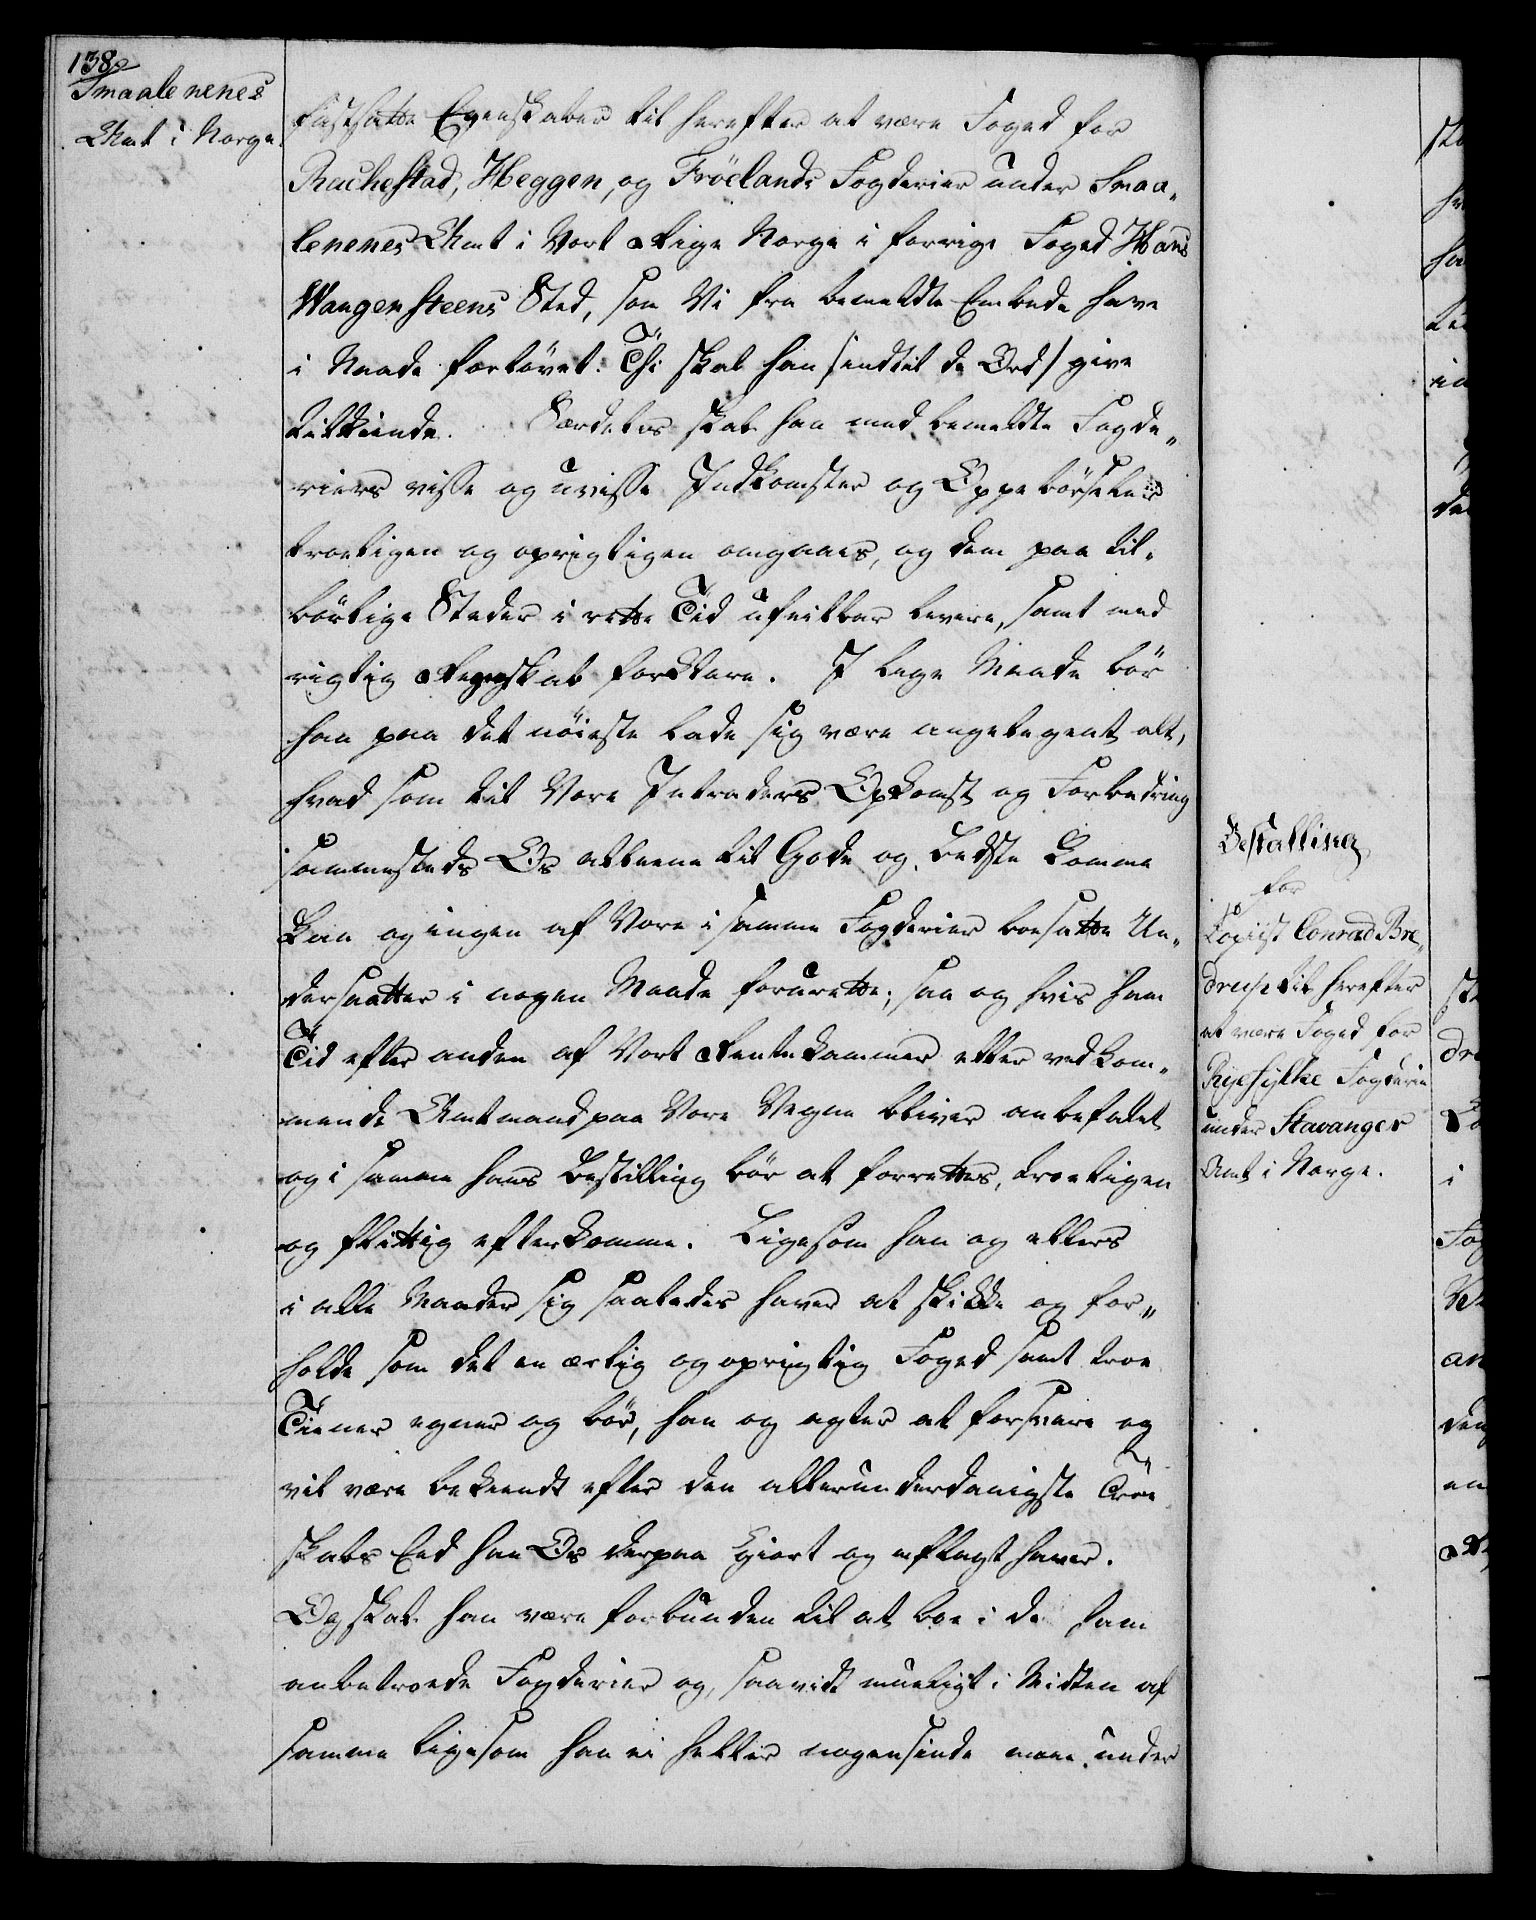 138
Smaalenenes
Amt i Norge.
fastsatte Egenskaber til herefter at være Foged for
Rachestad, Heggen, og Fröelands Fogderier under Smaa„
lenenes Amt i Vort Rige Norge i forrige Foged Hans
Wangensteens Sted, som Vi fra bemeldte Embede have
i Naade forlövet. Thi skal han /indtil de Ord/ give
tilkiende. Særdeles skal han med bemeldte Fogde„
riers visse og uvisse Indkomster og Oppebörseler
troeligen og oprigtigen omgaaes, og dem paa til„
börlige Steder i rette Tid ufeilbar levere, samt med
rigtig Regnskab forklare. I lige Maade bör
han paa det nöieste lade sig være angelegent alt,
hvad som til Vore Intraders Opkomst og Forbedring
sammesteds Os alleene til Gode og Bedste komme
kan og ingen af Vore i samme Fogderier boesatte Un„
dersaatter i nogen Maade forurette; saa og hvis ham
Tid efter anden af Vort Rentekammer eller vedkom„
mende Amtmand paa Vore Vegne bliver anbefalet
og i samme hans Bestilling bör at forrettes, troeligen
og flittig efterkomme. Ligesom han og ellers
i alle Maader sig saaledes haver at skikke og for„
holde som det en ærlig og oprigtig Foged samt troe
Tiener egner og bör, han og agter at forsvare og
vil være bekiendt efter den allerunderdanigste Troe
skabs Eed han Os derpaa giort og aflagt haver.
Og skal han være forbunden til at boe i de ham
anbetroede Fogderier og, saavidt mueligt i Midten af
samme ligesom han ei heller nogensinde maa under
Bestalling
for
Kopiist Conrad Bre„
drup til herefter
at være Foged for
Ryefylke Fogderie
under Stavanger
Amt i Norge.